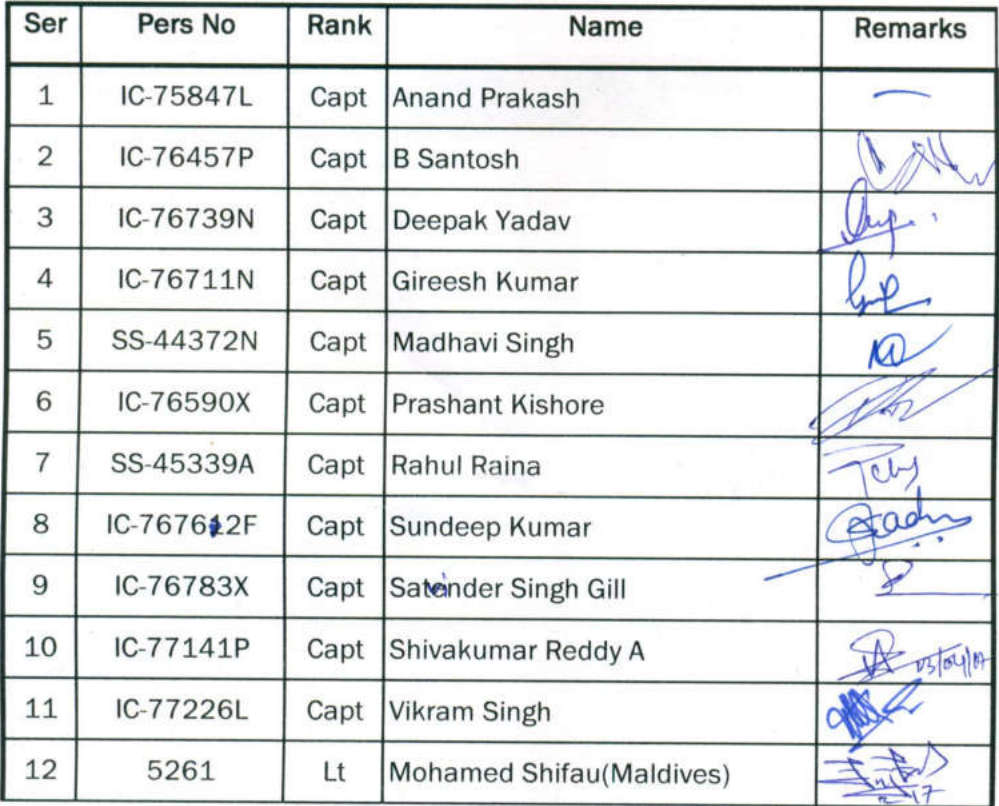 Ser Pers No Rank Name Remarks
1 IC-75847L Capt Anand Prakash —
2 IC-76457P Capt B Santosh
3 IC-76739N Capt Deepak Yadav
4 IC-76711N Capt Gireesh Kumar
5 SS-44372N Capt Madhavi Singh
6 IC-76590X Capt Prashant Kishore
7 SS-45339A Capt Rahul Raina
8 Capt Sundeep Kumar
9 IC-76783X Capt Singh Gill
10 IC-77141P Capt Shivakumar Reddy A
11 IC-77226L Capt Vikram Singh
12 5261 Lt Mohamed Shifau(Maldives)